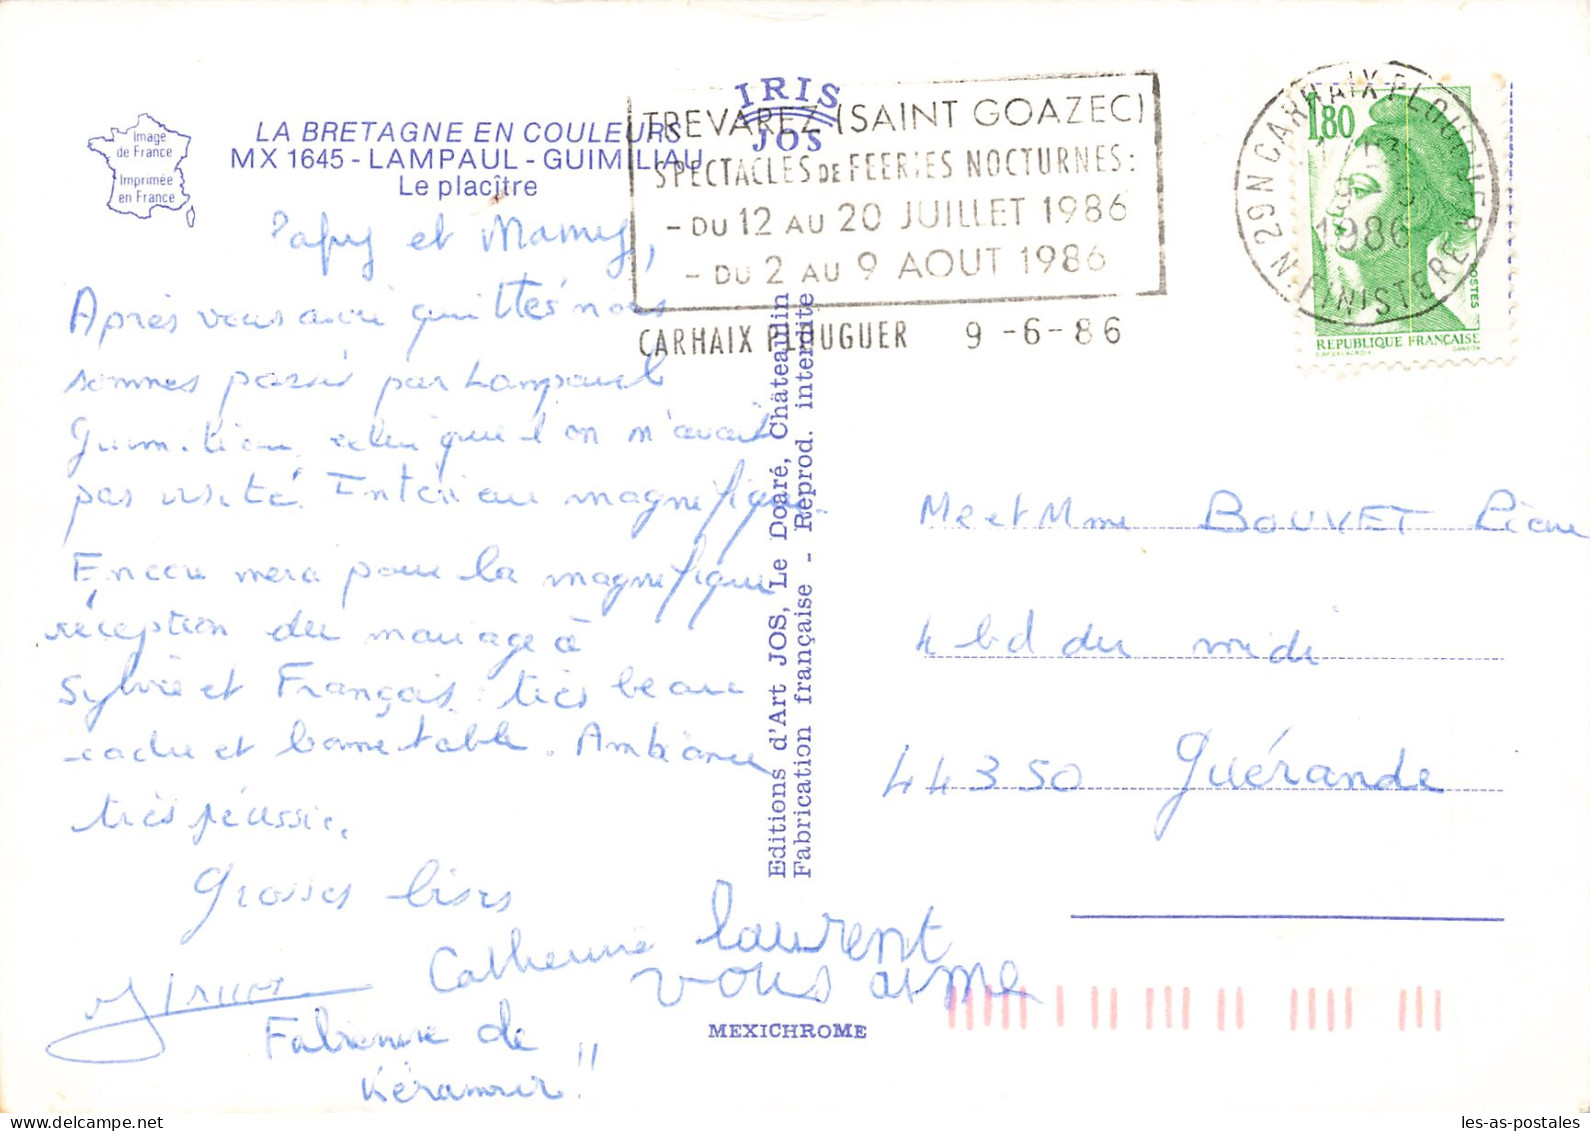 Image
de France
Imprimée
en France
LA BRETAGNE EN COULEURS
MX 1645 - LAMPAUL - GUIMILIAU
Le placître
IRIS
JOS
TREVAREZ (SAINT GOAZEC)
SPECTACLES DE FEERIES NOCTURNES:
- DU 12 AU 20 JUILLET 1986
- DU 2 AU 9 AOUT 1986
CARHAIX PLOUGUER 9 -6-86
29 N CARHAIX-PLOUGUER
1986
N. FINISTERE
1,80
POSTES
REPUBLIQUE FRANÇAISE
D'APRES DELACROIX GANDON
Papy et Mamy,
Après vous avoir quittés nous
sommes passés par Lampaul
Guimiliau, celui que l'on n'avait
pas visité. Intérieur magnifique.
Encore merci pour la magnifique
réception du mariage à
Sylvie et François : très beau
cadre et bonne table. Ambiance
très réussie.
Grosses bises
Catherine laurent
vous aime
Fabienne de
Editions d'Art JOS, Le Doaré, Châteaulin
Fabrication française - Reprod. interdite
MEXICHROME
Mr et Mme BOUVET
4 bd du midi
44350 Guérande
les-as-postales